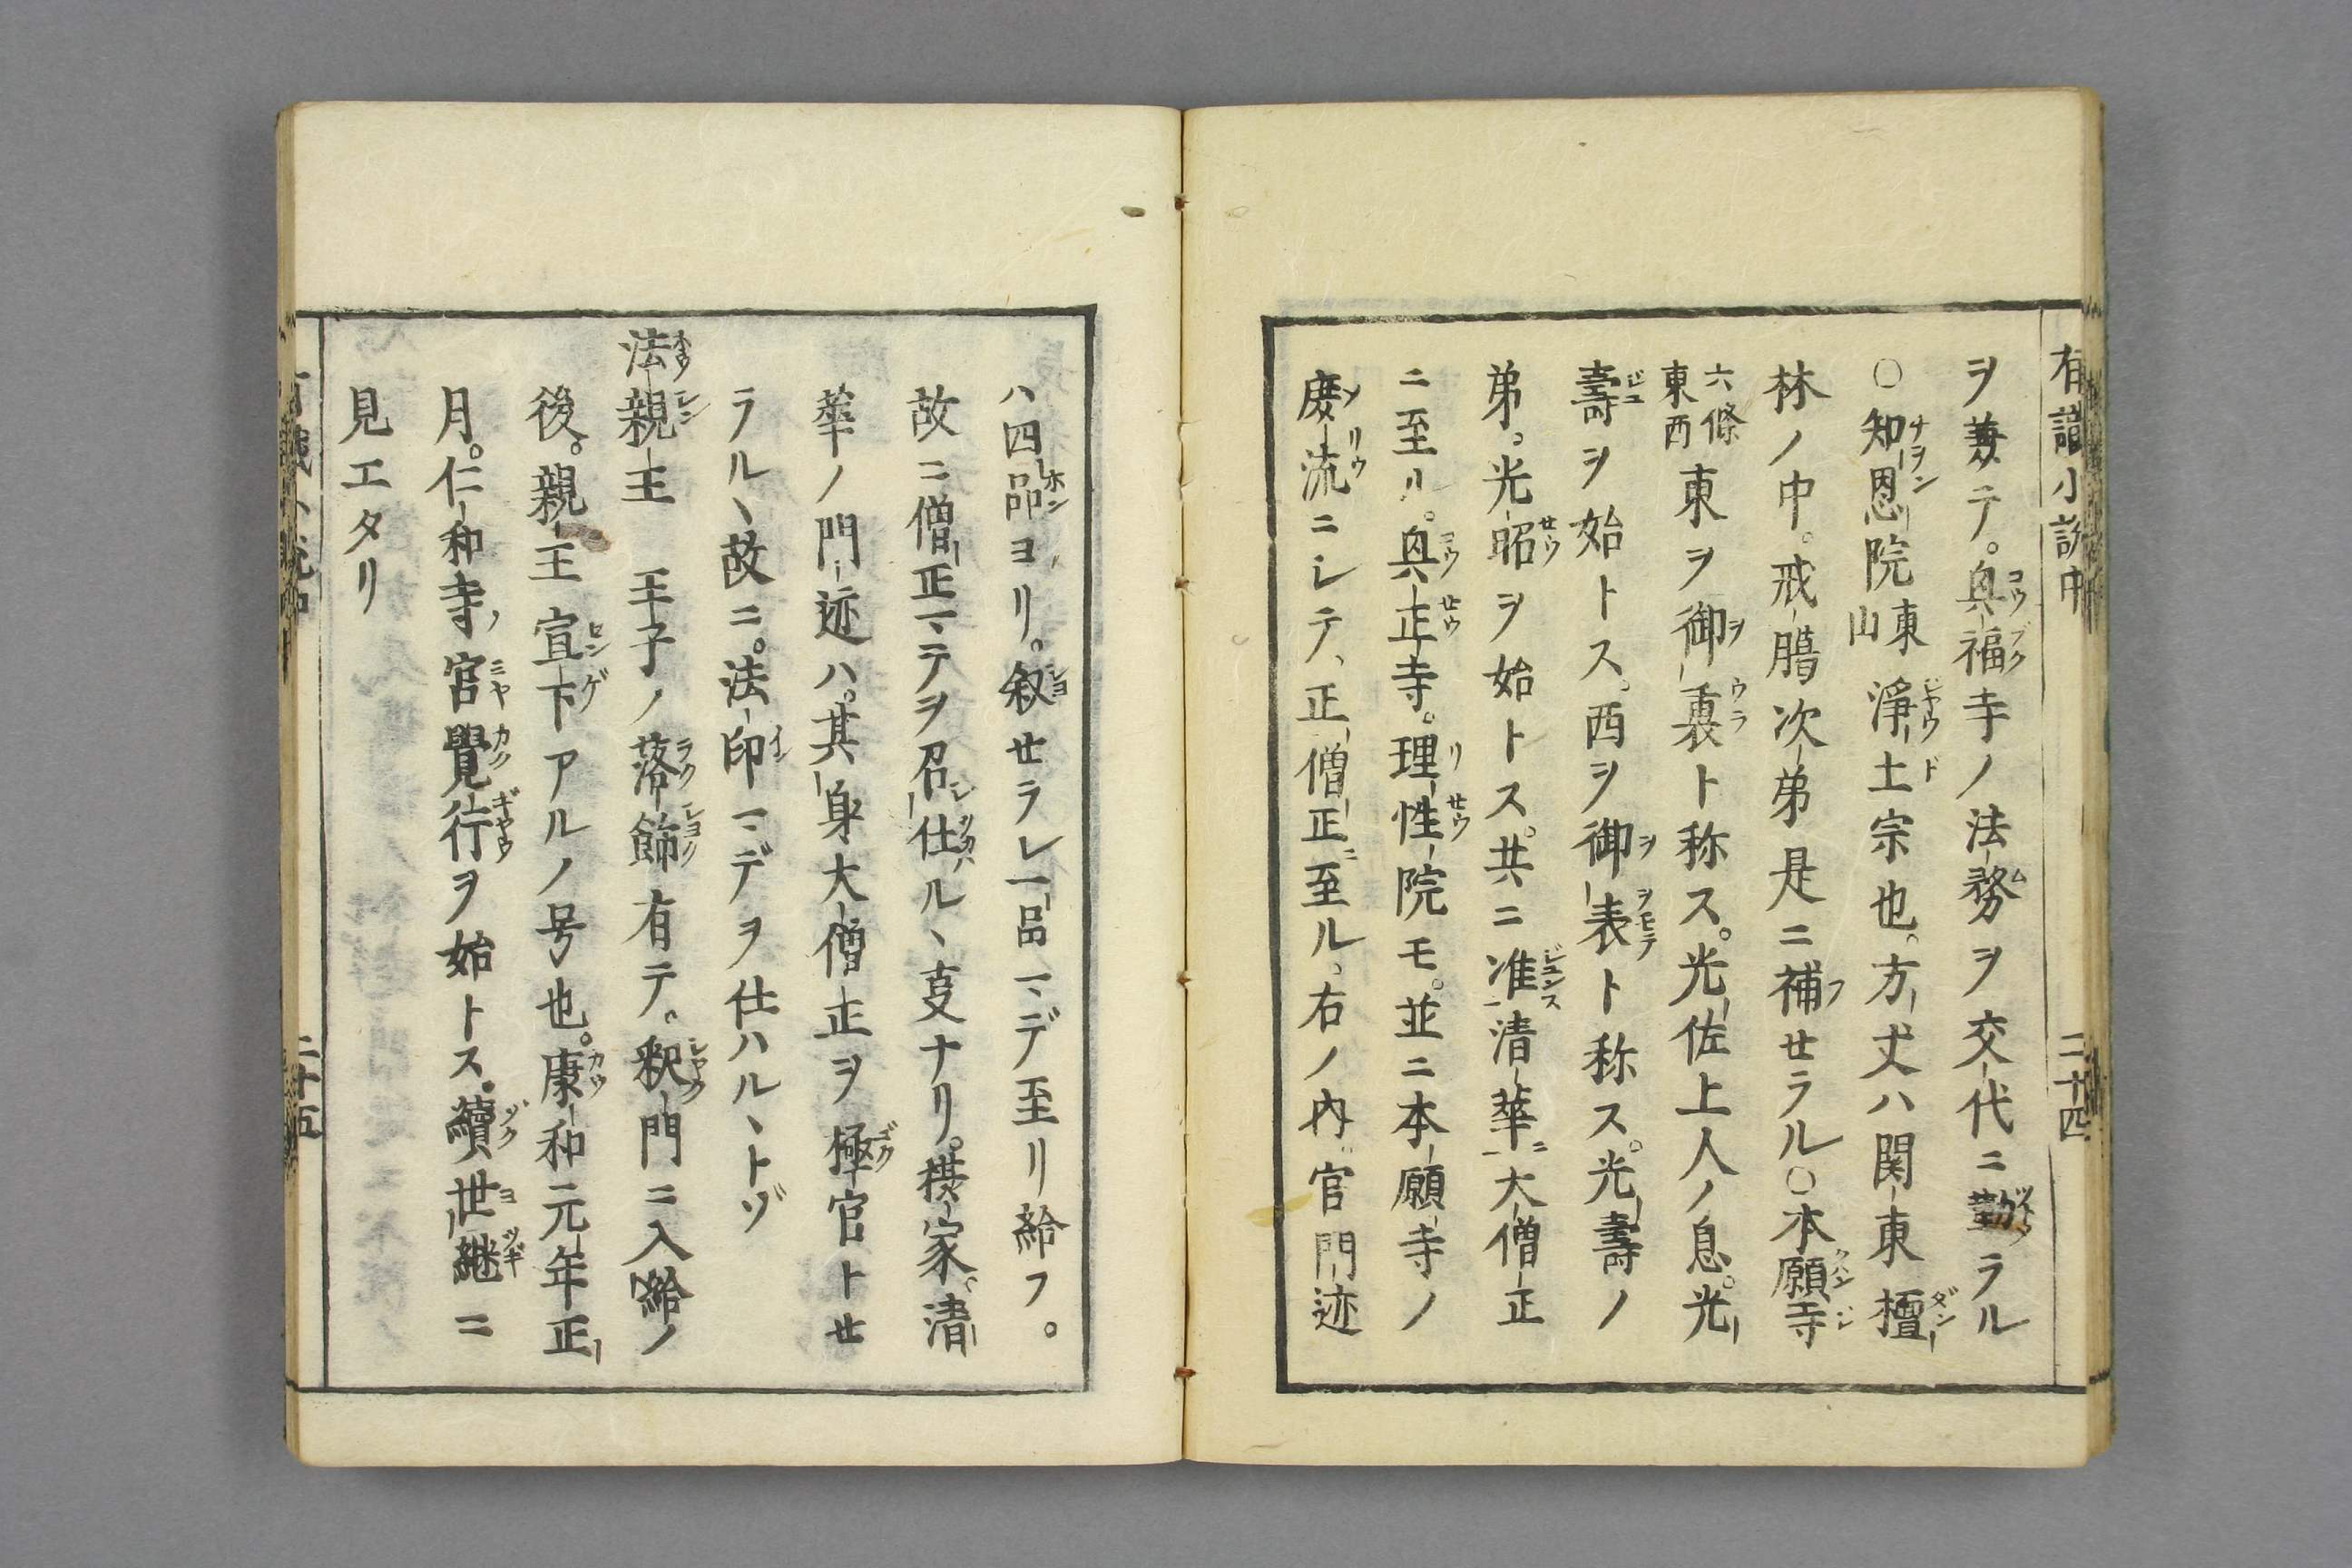 有識小説中
二十四
ヲ兼テ。興福寺ノ法務ヲ交代ニ勤ラル
○知恩院東山淨土宗也。方丈ハ関東檀
林ノ中。戒臈次弟是ニ補セラル○本願寺
六條東西東ヲ御裏ト称ス。光佐上人ノ息。光
壽ヲ始トス。西ヲ御表ト称ス。光壽ノ
弟。光昭ヲ始トス。共ニ准清華大僧正
ニ至ル。興正寺。理性院モ。並ニ本願寺ノ
庶流ニシテ、正僧正ニ至ル。右ノ内。官門迹
ハ四品ヨリ。叙セラレ一品マデ至リ給フ。
故ニ僧正マテヲ召仕ルヽ事ナリ。摂家。清
華ノ門迹ハ。其身大僧正ヲ極官トセ
ラルヽ故ニ。法印マデヲ仕ハルヽトゾ
法親王 王子ノ落飾有テ。釈門ニ入給ノ
後。親王宣下アルノ号也。康和元年正
月。仁和寺ノ宮覺行ヲ始トス。續世継ニ
見エタリ
二十五